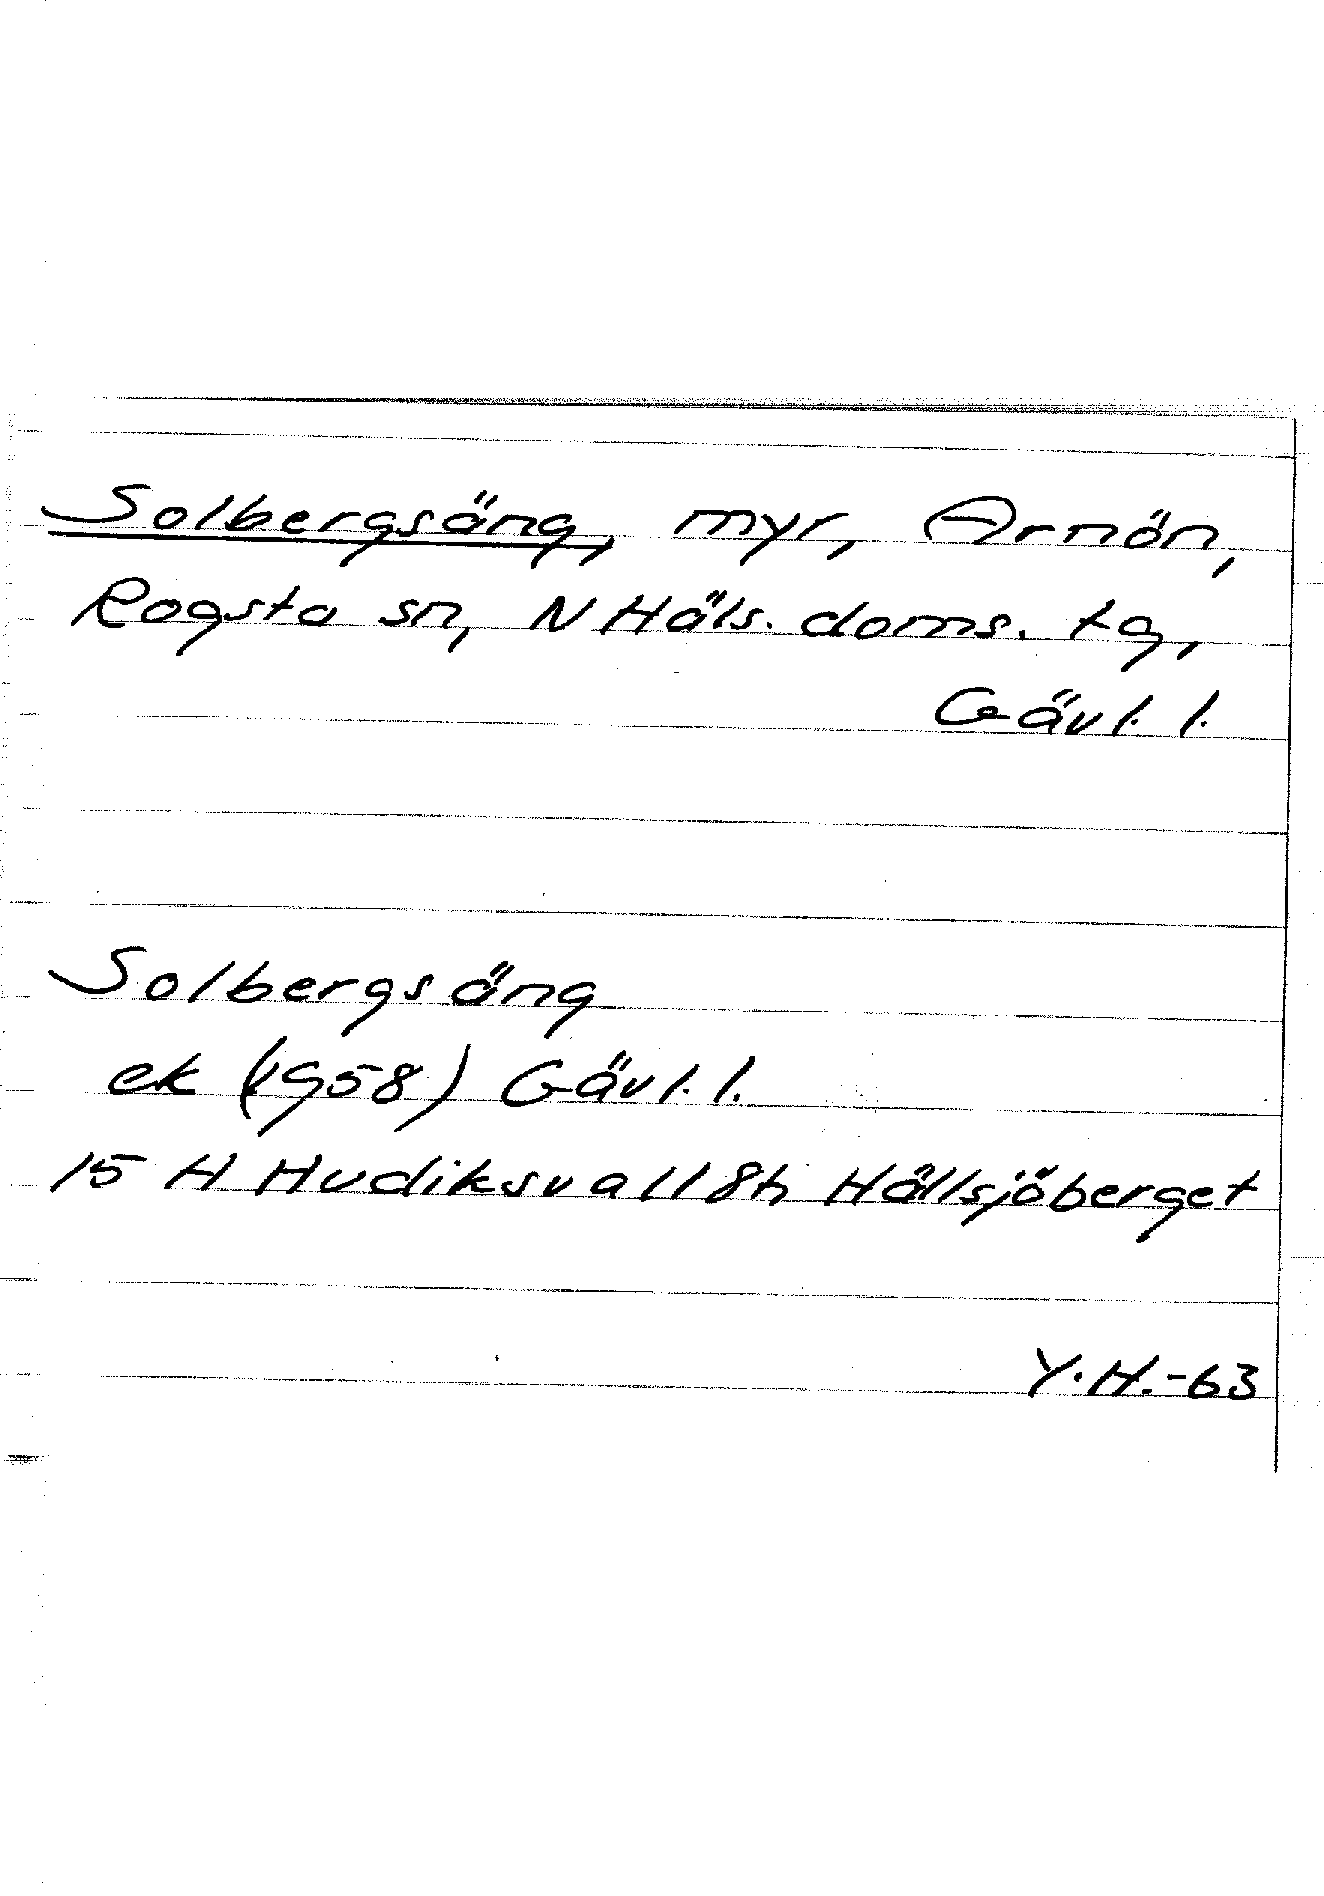 Solbergsäng, myr, Arnön,
Rogsta sn, N Häls. doms. tg,
Gävl. l.
Solbergsäng
ek (1958) Gävl. l.
15 H Hudiksvall 8h Hållsjöberget
Y.H.-63